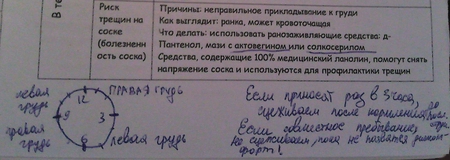 В те
Риск
трещин на
соске
(болезненн
ость соска)
Причины: неправильное прикладывание к груди
Как выглядит: ранка, может кровоточащая
Что делать: использовать ранозаживляющие средства: д-
Пантенол, мази с актовегином или солкосерилом
Средства, содержащие 100% медицинский ланолин, помогут снять
напряжение соска и используются для профилактики трещин
левая
грудь
правая
грудь
12
9
3
6
ПРАВАЯ ГРУДЬ
левая грудь
Если приносят раз в 3 часа,
сцеживаем после кормления
Если совместное пребывание,
не сцеживаем, пока не появится
форт!